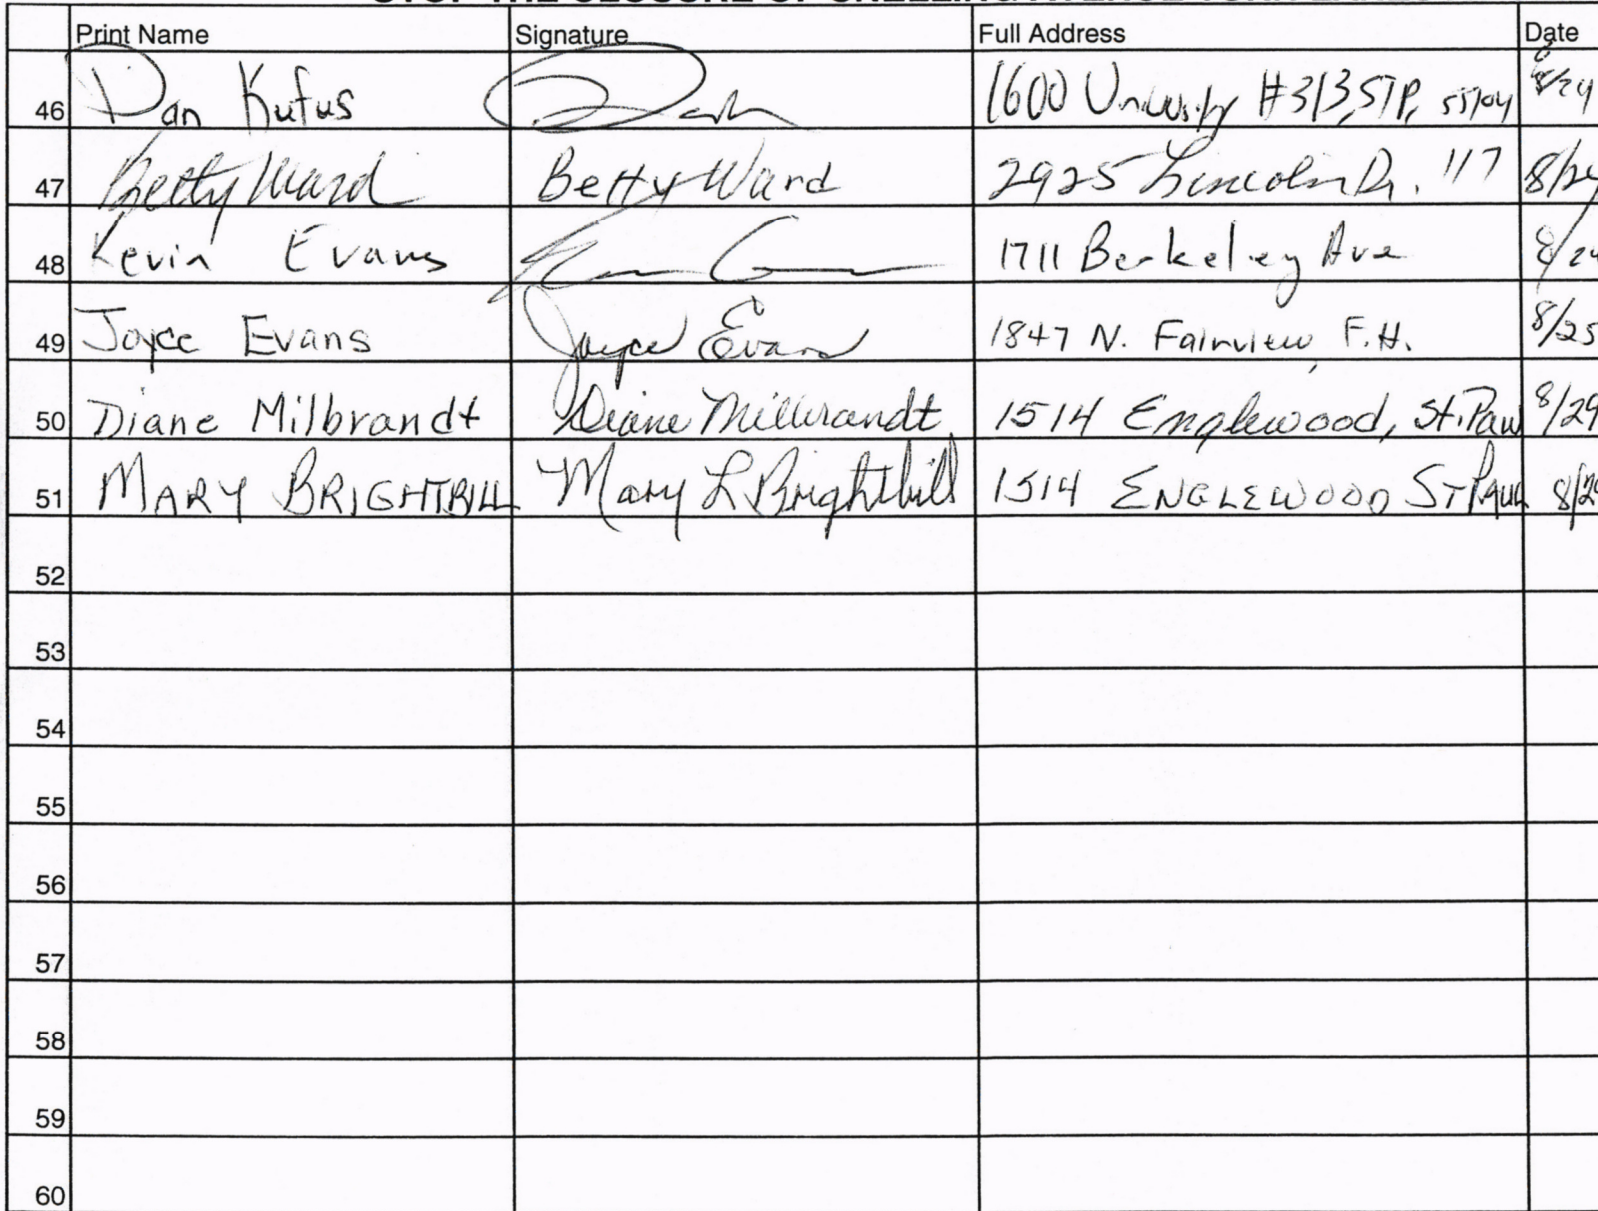 Print Name Signature Full Address Date
46 Dan Kufus 1600 University #313, STP, 55104 8/24
47 Betty Ward Betty Ward 2925 Lincoln Dr. 117 8/24
48 Kevin Evans 1711 Berkeley Ave 8/24
49 Joyce Evans Joyce Evans 1847 N. Fairview, F.H. 8/25
50 Diane Milbrandt Diane Milbrandt 1514 Englewood, St. Paul 8/29
51 MARY BRIGHTBILL Mary L Brightbill 1514 ENGLEWOOD ST PAUL 8/29
52
53
54
55
56
57
58
59
60